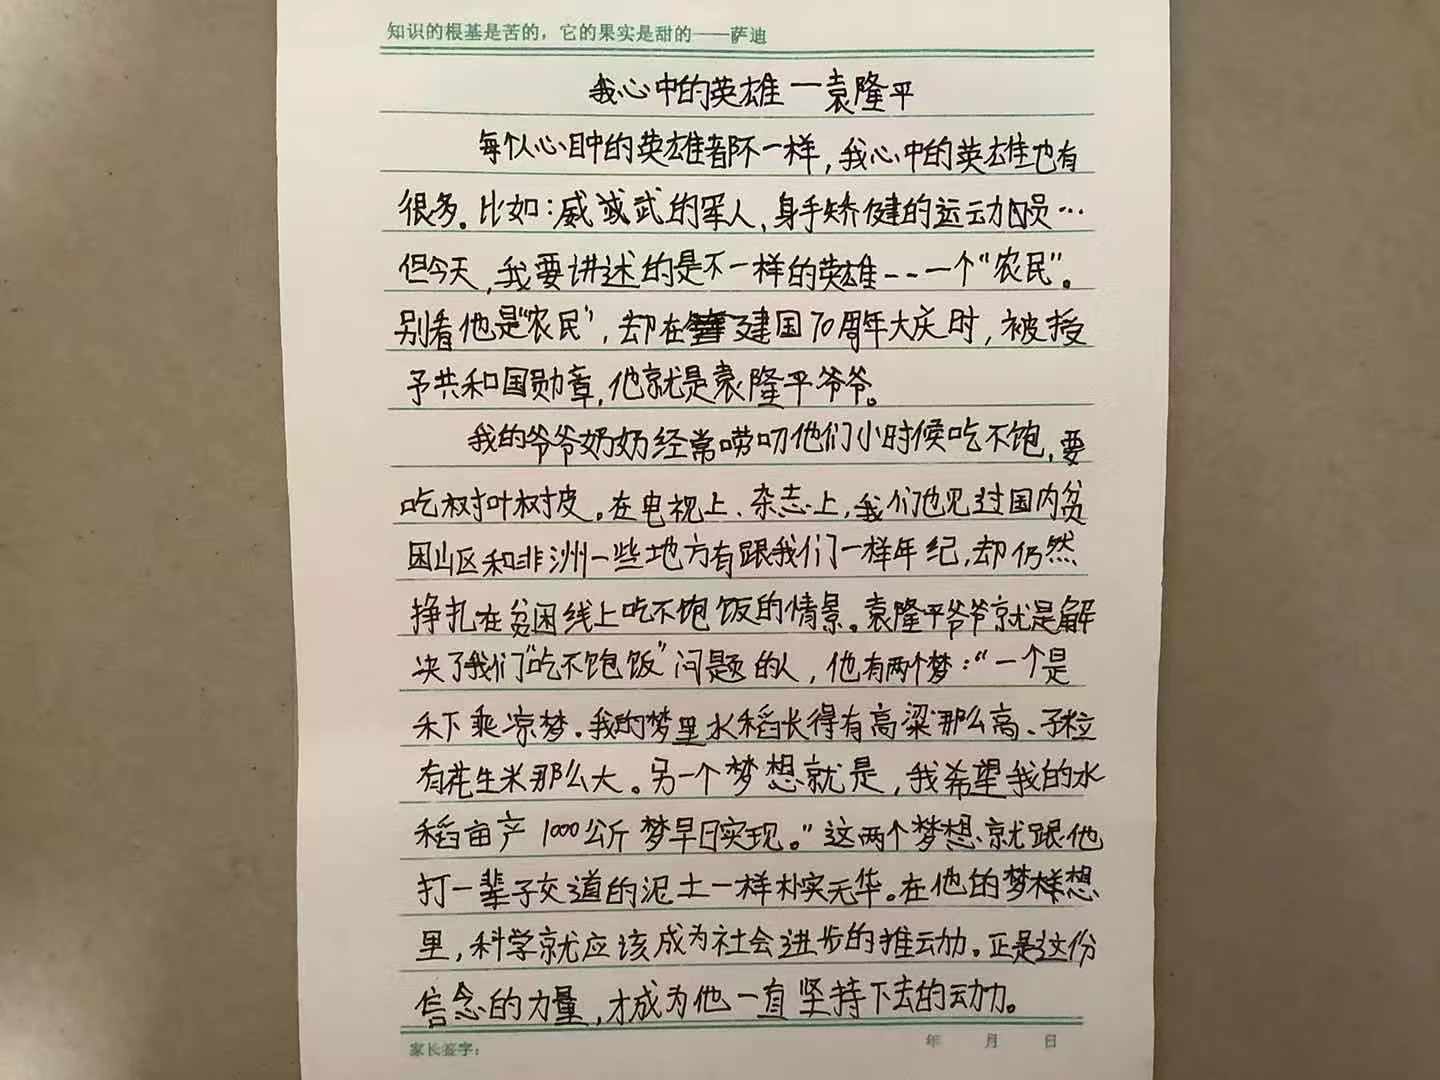 知识的根基是苦的，它的果实是甜的——萨迪
我心中的英雄一袁隆平
每个人心目中的英雄都不一样，我心中的英雄也有
很多。比如：威武的军人，身手矫健的运动员…
但今天，我要讲述的是不一样的英雄--一个“农民”。
别看他是“农民”，却在建国70周年大庆时，被授
予共和国勋章，他就是袁隆平爷爷。
我的爷爷奶奶经常唠叨他们小时候吃不饱，要
吃树叶树皮。在电视上、杂志上，我们也见过国内贫
困山区和非洲一些地方有跟我们一样年纪，却仍然
挣扎在贫困线上吃不饱饭的情景。袁隆平爷爷就是解
决了我们“吃不饱饭”问题的人，他有两个梦：“一个是
禾下乘凉梦。我的梦里水稻长得有高粱那么高、子粒
有花生米那么大。另一个梦想就是，我希望我的水
稻亩产1000公斤梦早日实现。”这两个梦想就跟他
打一辈子交道的泥土一样朴实无华。在他的梦想
里，科学就应该成为社会进步的推动力。正是这份
信念的力量，才成为他一直坚持下去的动力。
家长签字： 年 月 日